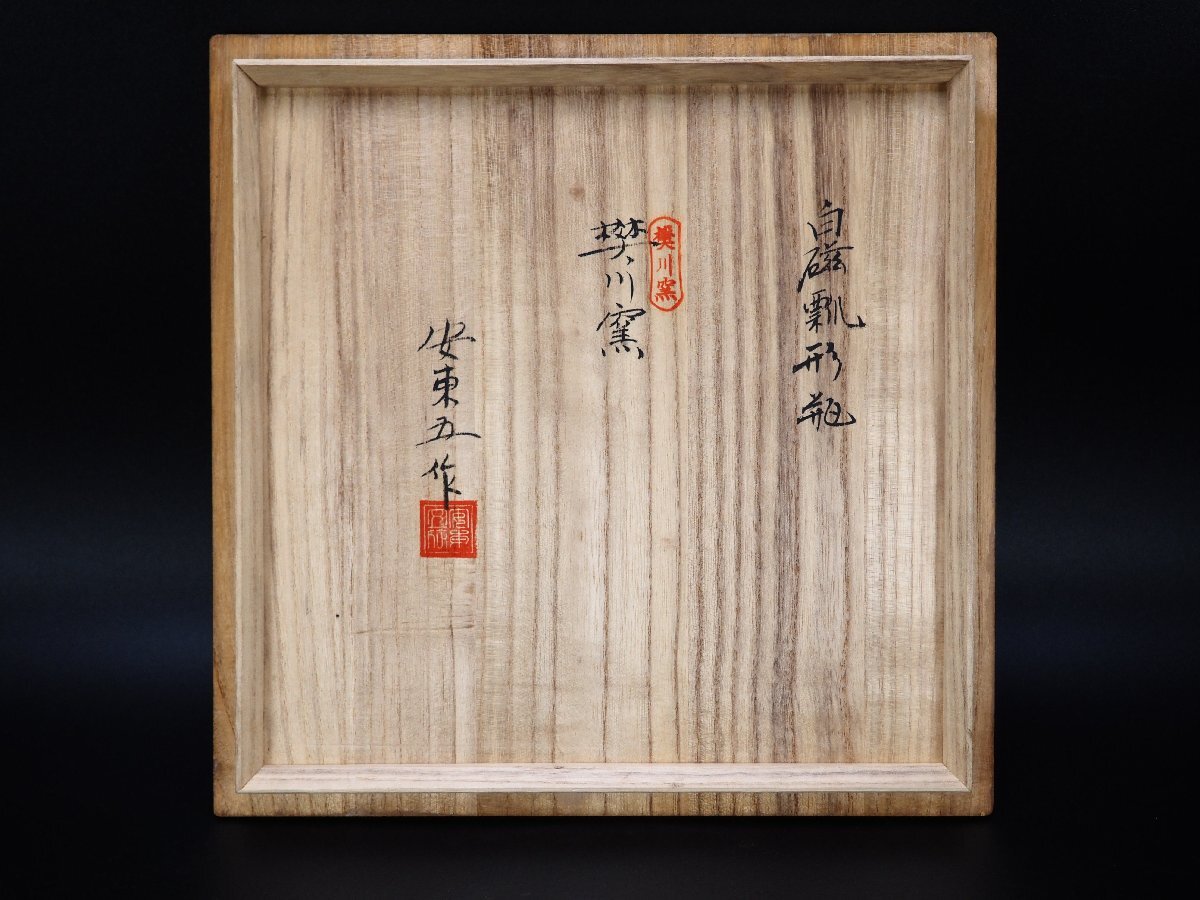 白磁瓢形瓶
樊川窯
樊川窯
安東五作